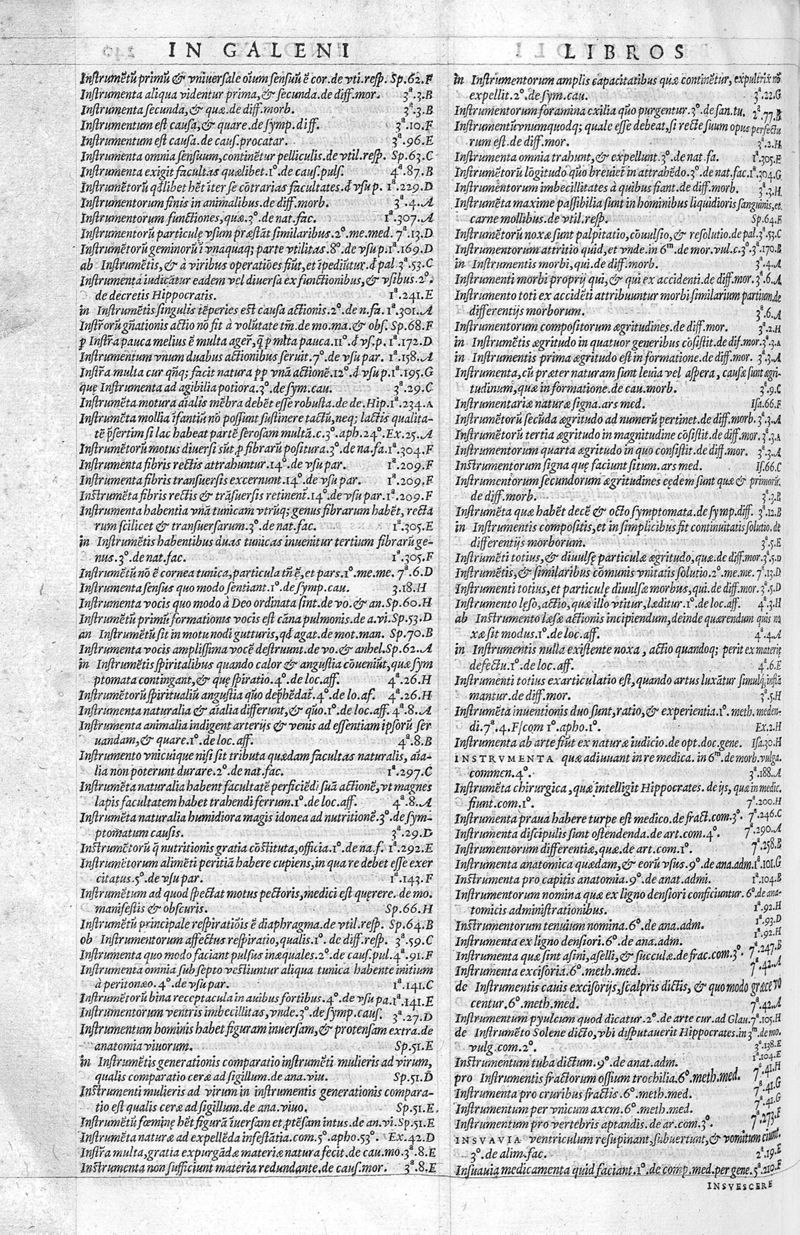 IN GALENI
Instrumētū primū & vniuersale oīum sensuū ē cor. de vti. resp. Sp.62.F
Instrumenta aliqua videntur prima, & secunda. de diff. mor. 3ª.3.B
Instrumenta secunda, & quæ. de diff. morb. 3ª.3.B
Instrumentum est causa, & quare. de symp. diff. 3ª.10.F
Instrumentum est causa. de caus. procatar. 3ª.96.E
Instrumenta omnia sensuum, continētur pelliculis. de vtil. resp. Sp.63.C
Instrumenta exigit facultas quælibet. 1º. de caus. puls. 4ª.87.B
Instrumētorū qdlibet hēt iter se cōtrarias facultates. d vsu p. 1ª.229.D
Instrumentorum finis in animalibus. de diff. morb. 3ª.4.A
Instrumentorum functiones, quæ. 3º. de nat. fac. 1ª.307.A
Instrumētorū particulę vsum præstāt similaribus. 2º. me. med. 7ª.13.D
Instrumētorū geminorū i vnaquaq; parte vtilitas. 8º. de vsu p. 1ª.169.D
ab Instrumētis, & à viribus operatiōes fiūt, et ipediūtur. d pal. 3ª.53.C
Instrumenta iudicātur eadem vel diuersa ex functionibus, & vsibus. 2º.
de decretis Hippocratis. 1ª.241.E
in Instrumētis singulis tēperies est causa actionis. 2º. de n. fa. 1ª.301.A
Instrōrū gñationis actio nō sit à volūtate tm̄. de mo. ma. & obs. Sp.68.F
p Instr̄a pauca melius ē multa ager̄, q̄ p mlta pauca. 11º. d vs. p. 1ª.172.D
Instrumentum vnum duabus actionibus seruit. 7º. de vsu par. 1ª.158.A
Instr̄a multa cur qñq; facit natura pp vnā actionē. 12º. d vs p. 1ª.195.G
que Instrumenta ad agibilia potiora. 3º. de sym. cau. 3ª.29.C
Instrumēta motura aīalis mēbra debēt esse robusta. de de. Hip. 1ª.234.A
Instrumēta mollia ifantiū nō possunt sustinere tactū, neq; lactis qualita-
tē p̄sertim si lac habeat partē serosam multā. c. 3º. aph. 24º. Ex.25.A
Instrumētorū motus diuersi sūt p fibrarū positura. 3º. de na. fa. 1ª.304.F
Instrumenta fibris rectis attrahuntur. 14º. de vsu par. 1ª.209.F
Instrumenta fibris transuersis excernunt. 14º. de vsu par. 1ª.209.F
Instrumēta fibris rectis & trāsuersis retinent. 14º. de vsu par. 1ª.209.F
Instrumenta habentia vnā tunicam vtrūq; genus fibrarum habēt, recta
rum scilicet & transuersarum. 3º. de nat. fac. 1ª.305.E
in Instrumētis habentibus duas tunicas inuenitur tertium fibrarū ge-
nus. 3º. de nat. fac. 1ª.305.F
Instrumētū nō ē cornea tunica, particula tn̄ ē, et pars. 1º. me. me. 7ª.6.D
Instrumenta sensus quo modo sentiant. 1º. de symp. cau. 3.18.H
Instrumenta vocis quo modo à Deo ordinata sint. de vo. & an. Sp.60.H
Instrumētū primū formationis vocis est cāna pulmonis. de a. vi. Sp.53.D
an Instrumētū sit in motu nodi gutturis, qd agat. de mot. man. Sp.70.B
Instrumenta vocis amplissima vocē destruunt. de vo. & anhel. Sp.62.A
in Instrumētis spiritalibus quando calor & angustia cōueniūt, quæ sym
ptomata contingant, & quę spiratio. 4º. de loc. aff. 4ª.26.H
Instrumētorū spiritualiū angustia quo dep̄hēdat̄. 4º. de lo. af. 4ª.26.H
Instrumenta naturalia & aīalia differunt, & quo. 1º. de loc. aff. 4ª.8.A
Instrumenta animalia indigent arterijs & venis ad essentiam ipsorū ser
uandam, & quare. 1º. de loc. aff. 4ª.8.B
Instrumento vnicuique nisi sit tributa quædam facultas naturalis, aīa-
lia non poterunt durare. 2º. de nat. fac. 1ª.297.C
Instrumenta naturalia habent facultatē perficiēdi suā actionē, vt magnes
lapis facultatem habet trahendi ferrum. 1º. de loc. aff. 4ª.8.A
Instrumēta naturalia humidiora magis idonea ad nutritionē. 3º. de sym-
ptomatum causis. 3ª.29.D
Instrumētorū q̄ nutritionis gratia cōstituta, officia. 1º. de na. f. 1ª.292.E
Instrumētorum alimēti peritiā habere cupiens, in qua re debet esse exer
citatus. 5º. de vsu par. 1ª.143.F
Instrumētum ad quod spectat motus pectoris, medici est quęrere. de mo.
manifestis & obscuris. Sp.66.H
Instrumētū principale respiratiōis ē diaphragma. de vtil. resp. Sp.64.B
ob Instrumentorum affectus respiratio, qualis. 1º. de diff. resp. 3ª.59.C
Instrumenta quo modo faciant pulsus inæquales. 2º. de caus. pul. 4ª.91.F
Instrumenta omnia sub septo vestiuntur aliqua tunica habente initium
à peritonæo. 4º. de vsu par. 1ª.141.C
Instrumētorū bina receptacula in auibus fortibus. 4º. de vsu pa. 1ª.141.E
Instrumentorum ventris imbecillitas, vnde. 3º. de symp. caus. 3ª.27.D
Instrumentum hominis habet figuram inuersam, & protensam extra. de
anatomia viuorum. Sp.51.E
in Instrumētis generationis comparatio instrumēti mulieris ad virum,
qualis comparatio ceræ ad sigillum. de ana. viu. Sp.51.D
Instrumenti mulieris ad virum in instrumentis generationis compara-
tio est qualis ceræ ad sigillum. de ana. viuo. Sp.51.E.
Instrumētū fœminę hēt figurā iuersam, et ptēsam intus. de an. vi. Sp.51.E
Instrumēta naturæ ad expellēda infestātia. com. 5º. apho. 53º. Ex.42.D
Instr̄a multa, gratia expurgādæ materiæ natura fecit. de cau. mo. 3ª.8.E
Instrumenta non sufficiunt materia redundante, de caus. mor. 3ª.8.E
LIBROS
in Instrumentorum amplis capacitatibus quæ continētur, expultrix nō
expellit. 2º. de sym. cau. 3ª.22.G
Instrumentorum foramina exilia quo purgentur. 3º. de san. tu. 2ª.77.B
Instrumentū vnumquodq; quale esse debeat, si recte suum opus perfectu
rum est. de diff. mor. 3ª.2.H
Instrumenta omnia trahunt, & expellunt. 3º. de nat. fa. 1ª.305.E
Instrumētorū lōgitudo quo breuiet̄ in attrahēdo. 3º. de nat. fac. 1ª.304.G
Instrumentorum imbecillitates à quibus fiant. de diff. morb. 3ª.3.H
Instrumēta maxime passibilia sunt in hominibus liquidioris sanguinis, et
carne mollibus. de vtil. resp. Sp.64.F
Instrumētorū noxæ sunt palpitatio, cōuulsio, & resolutio. de pal. 3ª.53.C
Instrumentorum attritio quid, et vnde. in 6m. de mor. vul. c. 3º. 3ª.170.B
in Instrumentis morbi, qui. de diff. morb. 3ª.4.A
Instrumenti morbi proprij qui, & qui ex accidenti. de diff. mor. 3ª.6.A
Instrumento toti ex accidēti attribuuntur morbi similarium partium. de
differentijs morborum. 3ª.6.A
Instrumentorum compositorum ægritudines. de diff. mor. 3ª.2.H
in Instrumētis ægritudo in quatuor generibus cōsistit. de dif. mor. 3ª.3.A
in Instrumentis prima ægritudo est in formatione. de diff. mor. 3ª.3.A
Instrumenta, cū præter naturam sunt leuia vel aspera, causæ sunt ægri-
tudinum, quæ in formatione. de cau. morb. 3ª.9.C
Instrumentariæ naturæ signa. ars med. Isa.66.F
Instrumētorū secūda ægritudo ad numerū pertinet. de diff. morb. 3ª.3.A
Instrumētorū tertia ægritudo in magnitudine cōsistit. de diff. mor. 3ª.3.A
Instrumentorum quarta ægritudo in quo consistit. de diff. mor. 3ª.3.A
Instrumentorum signa quę faciunt situm. ars med. Is.66.C
Instrumentorum secundorum ægritudines eędem sunt quæ & primorū.
de diff. morb. 3ª.3.B
Instrumēta quæ habēt decē & octo symptomata. de symp. diff. 3ª.12.B
in Instrumentis compositis, et in simplicibus fit continuitatis solutio. de
differentijs morborum. 3ª.5.E
Instrumēti totius, & diuulsę particulæ ægritudo, quæ. de diff. mor. 3ª.5.D
Instrumētis, & similaribus cōmunis vnitatis solutio. 2º. me. me. 7ª.13.D
Instrumenti totius, et particulę diuulsæ morbus, qui. de diff. mor. 3ª.5.D
Instrumento leso, actio, quæ illo vtitur, læditur. 1º. de loc. aff. 4ª.3.H
ab Instrumento læsæ actionis incipiendum, deinde quarendum quis no
xæ sit modus. 1º. de loc. aff. 4ª.4.A
in Instrumentis nulla existente noxa, actio quandoq; perit ex materiæ
defectu. 1º. de loc. aff. 4ª.6.E
Instrumenti totius exarticulatio est, quando artus luxātur simulq; insinā
mantur. de diff. mor. 3ª.5.H
Instrumēta inuentionis duo sunt, ratio, & experientia. 1º. meth. meden-
di. 7ª.4.F/com 1º. apho. 1º. Ex.2.H
Instrumenta ab arte fiūt ex naturæ iudicio. de opt. doc. gene. Isa.30.H
INSTRVMENTA quæ adiuuant in re medica. in 6m. de morb. vulga.
commen. 4º. 3ª.188.A
Instrumēta chirurgica, quæ intelligit Hippocrates. de ijs, quæ in medic.
fiunt. com. 1º. 7ª.200.H
Instrumenta praua habere turpe est medico. de fract. com. 3º. 7ª.246.C
Instrumenta discipulis sunt ostendenda. de art. com. 4º. 7ª.290.A
Instrumentorum differentiæ, quæ. de art. com. 1º. 7ª.258.B
Instrumenta anatomica quædam, & eorū vsus. 9º. de ana. adm. 1ª.101.G
Instrumenta pro capitis anatomia. 9º. de anat. admi. 1ª.104.B
Instrumentorum nomina quæ ex ligno densiori conficiuntur. 6º. de ana-
tomicis administrationibus. 1ª.92.H
Instrumentorum tenuium nomina. 6º. de ana. adm. 1ª.93.D
Instrumenta ex ligno densiori. 6º. de ana. adm. 1ª.92.H
Instrumenta quæ sint asini, aselli, & succulæ. de frac. com. 3º. 7ª.247.B
Instrumenta excisoria. 6º. meth. med. 7ª.42.A
de Instrumentis cauis excisorijs, scalpris dictis, & quo modo græce vo
centur. 6º. meth. med. 7ª.42.A
Instrumentum pyulcum quod dicatur. 2º. de arte cur. ad Glau. 7ª.105.H
de Instrumēto Solene dicto, vbi disputauerit Hippocrates. in 3m. de mo.
vulg. com. 2º. 3ª.138.E
Instrumentum tuba dictum. 9º. de anat. adm. 1ª.104.E
pro Instrumentis fractorum ossium trochilia. 6º. meth. med. 7ª.41.H
Instrumenta pro cruribus fractis. 6º. meth. med. 7ª.41.G
Instrumentum per vnicum axem. 6º. meth. med. 7ª.41.G
Instrumentum pro vertebris aptandis. de ar. com. 3º. 7ª.273.F
INSVAVIA ventriculum resupinant, subuertunt, & vomitum cient.
3º. de alim. fac. 2ª.19.E
Insuauia medicamenta quid faciant. 1º. de comp. med. per gene. 3ª.210.F
INSVESCERE